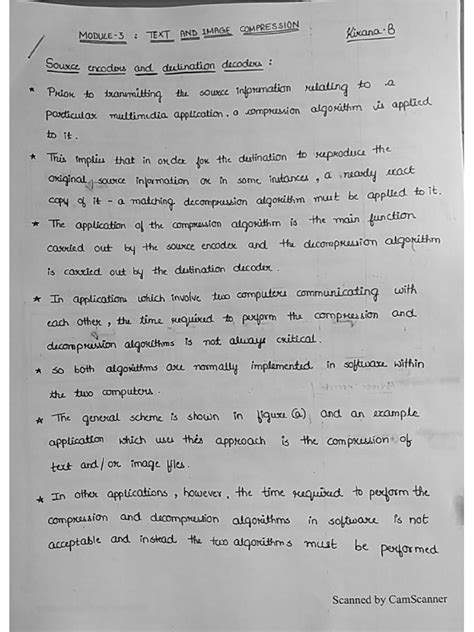 MODULE-3 : TEXT AND IMAGE COMPRESSION
Kirana.B
Source encoders and destination decoders :
* Prior to transmitting the source information relating to a
particular multimedia application, a compression algorithm is applied
to it.
* This implies that in order for the destination to reproduce the
original source information or in some instances, a nearly exact
copy of it - a matching decompression algorithm must be applied to it.
* The application of the compression algorithm is the main function
carried out by the source encoder and the decompression algorithm
is carried out by the destination decoder.
* In applications which involve two computers communicating with
each other, the time required to perform the compression and
decompression algorithms is not always critical.
* so both algorithms are normally implemented in software within
the two computers.
* The general scheme is shown in figure (a) and an example
application which uses this approach is the compression of
text and/or image files.
* In other applications, however, the time required to perform the
compression and decompression algorithms in software is not
acceptable and instead the two algorithms must be performed
Scanned by CamScanner